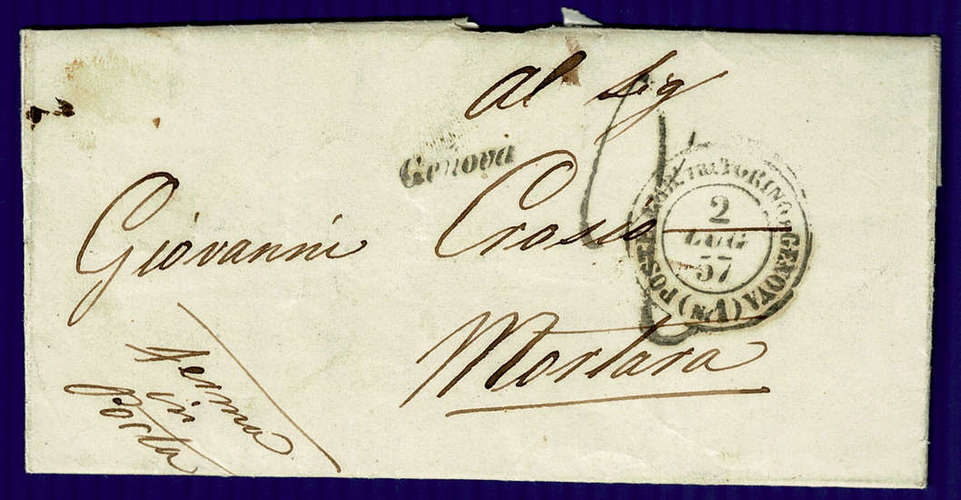 Al Sig
Genova
Giovanni Crosio
Mortara
ferma
in
Posta
POSTE TRA TORINO E GENOVA (N)
2
LUG
57